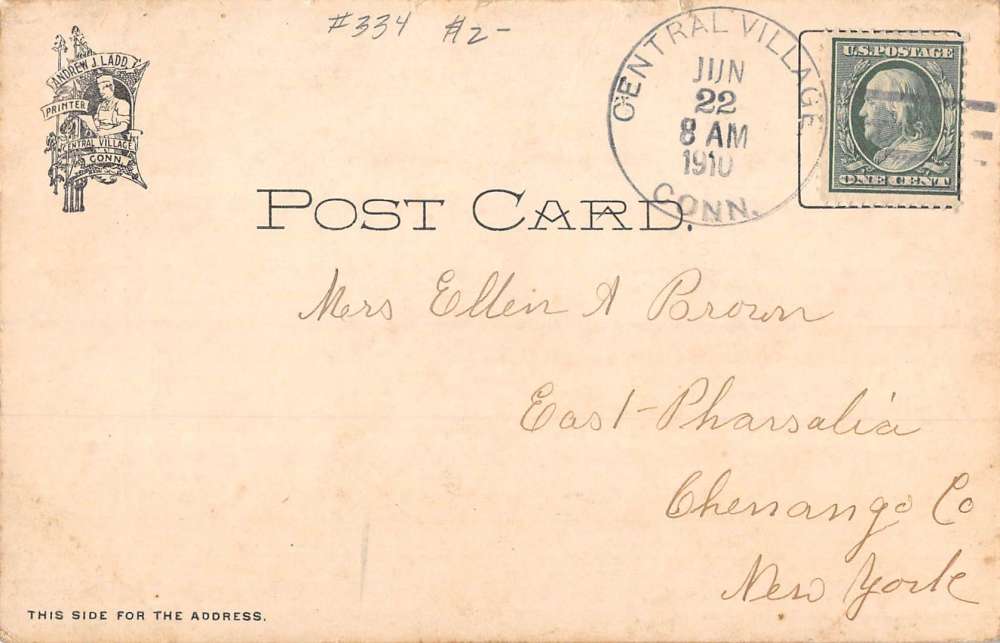 #334 #2-
ANDREW J. LADD,
PRINTER
CENTRAL VILLAGE
CONN.
CENTRAL VILLAGE
JUN
22
8 AM
1910
CONN.
U.S. POSTAGE
ONE CENT
POST CARD.
Mrs Ellen A Brown
East-Pharsalia
Chenango Co
New York
THIS SIDE FOR THE ADDRESS.